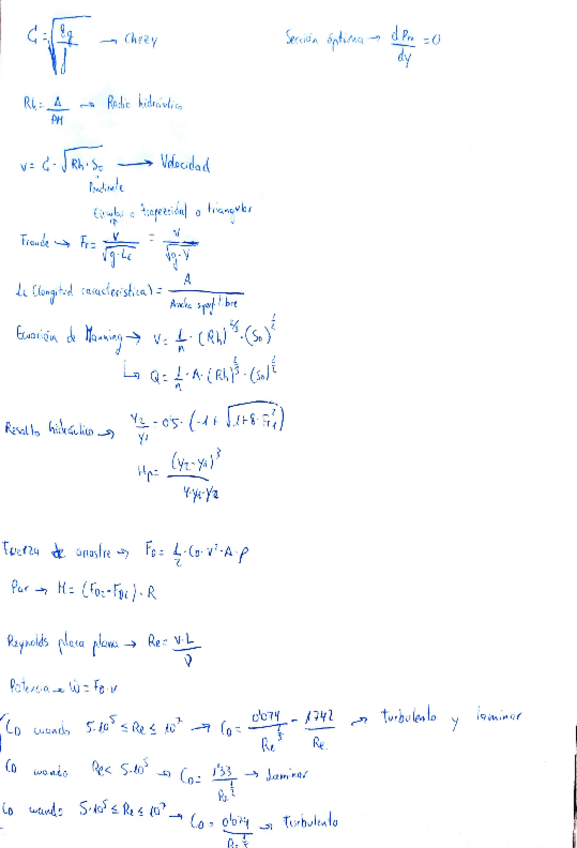 C = √(8g/f) → Chezy
Sección óptima → dPm/dy = 0
Rh = A/PM → Radio hidráulico
V = C · √(Rh · So) → Velocidad
Pendiente
Circular o trapezoidal o triangular
Froude → Fr = V/√(g·Lc) = V/√(g·Y)
Lc (longitud característica) = A/Ancho sup libre
Ecuación de Manning → V = 1/n · (Rh)^2/3 · (So)^1/2
↳ Q = 1/n · A · (Rh)^2/3 · (So)^1/2
Resalto hidráulico → Y2/Y1 = 0'5 · (-1 + √(1+8·Fr1²))
Hp = (Y2-Y1)³/4·Y1·Y2
Fuerza de arrastre → FD = 1/2 · CD · V² · A · ρ
Par → M = (FD2 - FD1) · R
Reynolds placa plana → Re = V·L/ν
Potencia → Ẇ = FD · v
CD cuando 5·10⁵ ≤ Re ≤ 10⁷ → CD = 0'074/Re^1/5 - 1742/Re → turbulento y laminar
CD cuando Re < 5·10⁵ → CD = 1'33/Re^1/2 → Laminar
CD cuando 5·10⁵ ≤ Re ≤ 10⁷ → CD = 0'074/Re^1/5 → turbulento